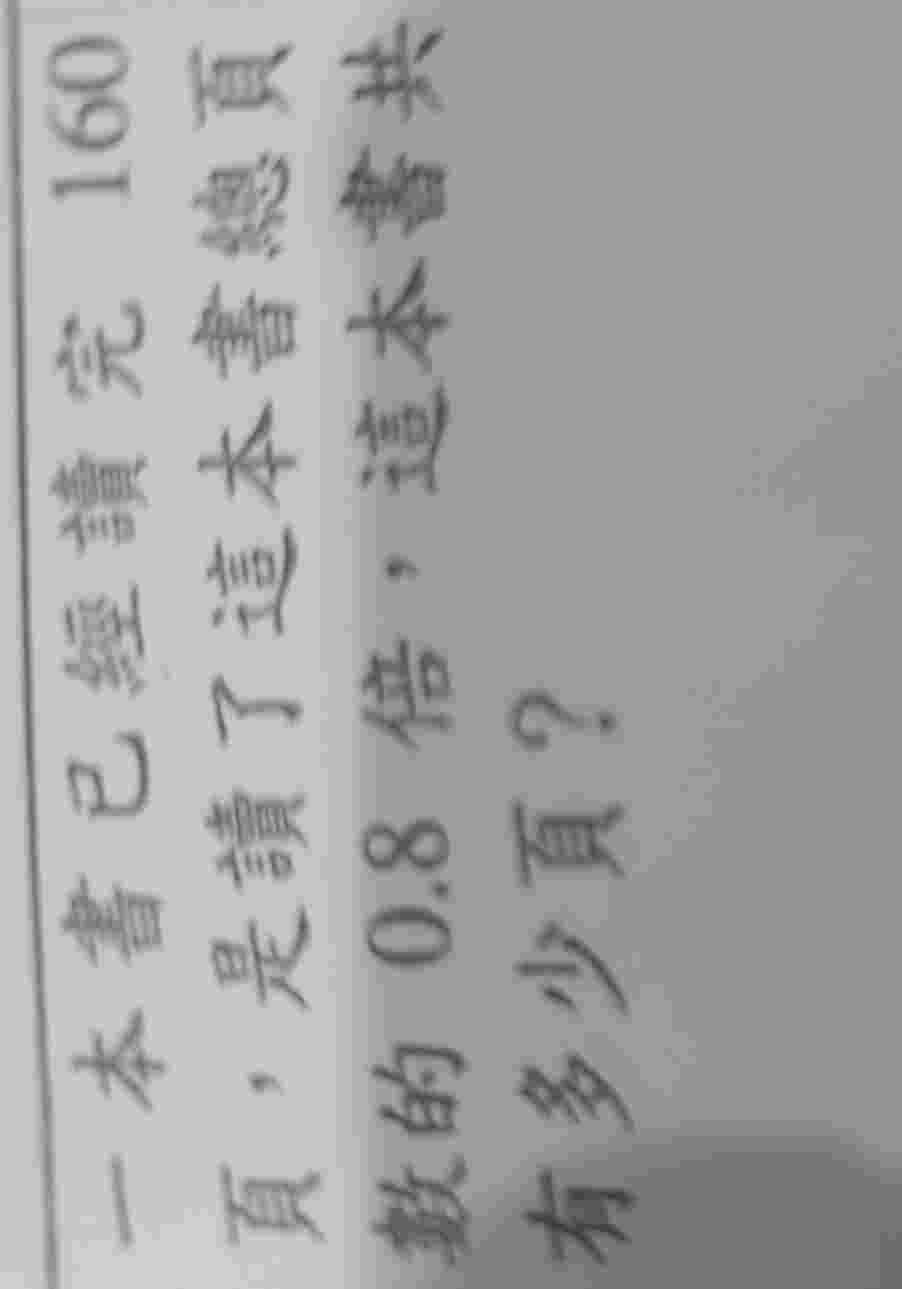 一本書已經讀完 160
頁，是讀了這本書總頁
數的 0.8 倍，這本書共
有多少頁？